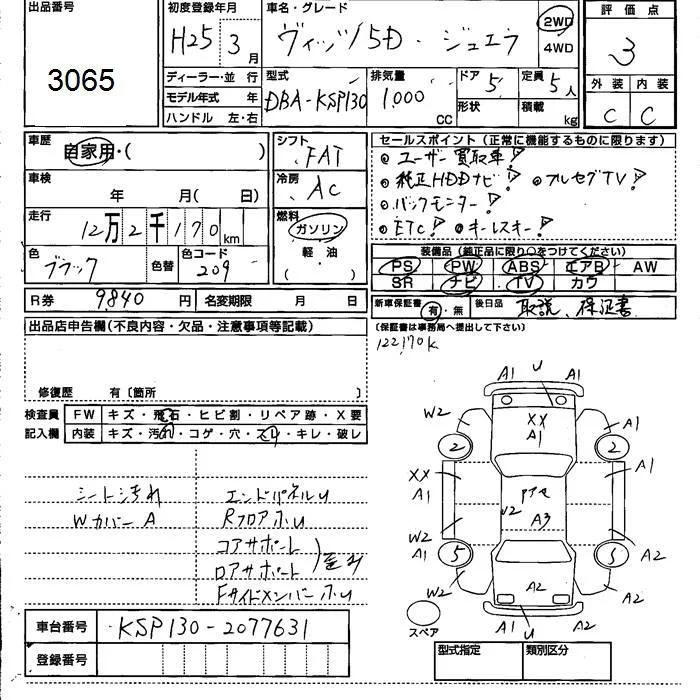 出品番号
3065
初度登録年月
H25 3 月
車名・グレード
ヴィッツ 5D・ジュエラ
2WD
4WD
評価点
3
ディーラー・並 行
モデル年式 年
ハンドル 左・右
型式
DBA-KSP130
排気量
1,000 CC
ドア 5
形状
定員 5人
積載 kg
外装 内装
C C
車歴
自家用・( )
シフト
FAT
車検
年 月( 日)
冷房
AC
走行
12万2千170 km
燃料
ガソリン
軽・油
色
ブラック
色替
色コード
209
R券 9840 円
名変期限 月 日
セールスポイント(正常に機能するものに限ります)
ユーザー買取車!
純正HDDナビ! フルセグTV!
バックモニター!
ETC! キーレスキー!
装備品(純正品に限り○をつけてください)
PS PW ABS エアB AW
SR ナビ TV カワ
新車保証書 有・無 後日品 取説、保証書
(保証書は事務局へ提出して下さい)
122170K
出品店申告欄(不良内容・欠品・注意事項等記載)
修復歴 有〔箇所 〕
検査員 FW キズ・飛石・ヒビ割・リペア跡・X要
記入欄 内装 キズ・汚れ・コゲ・穴・スレ・キレ・破レ
シート汚れ
Wカバー A
エンドパネルU
Rフロア小U
コアサポート
ロアサポート
Fサイドメンバー小U
車台番号 KSP130-2077631
登録番号
A1 U A1
W2 A1
XX
A1
2 2
XX
A1 A1
W2 A3
W2
A1 A2
5 5
W2 A2 A2
A1 U A1
スペア
型式指定 類別区分